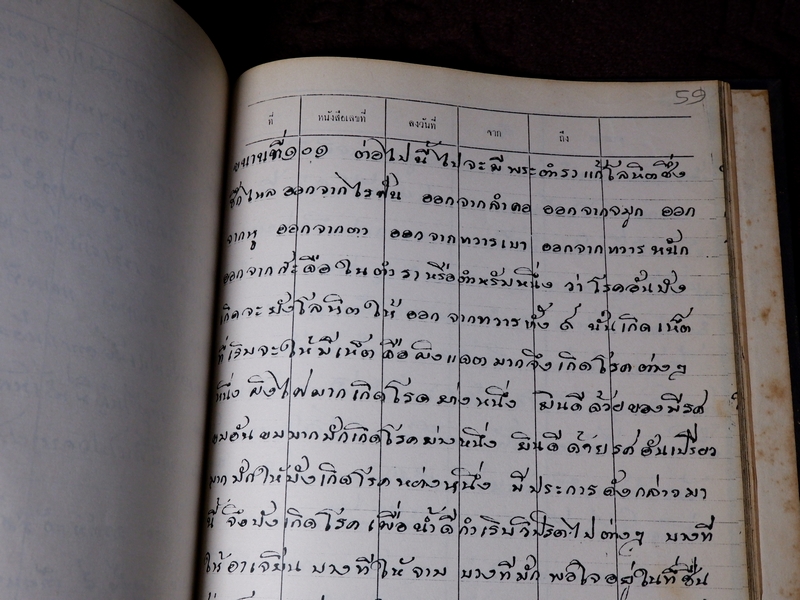 59
ที่ หนังสือเลขที่ ลงวันที่ จาก ถึง
ขนานที่๑๐๑ ต่อไปนี้ไปจะมีพระตำราแก้โลหิตซึ่ง
ไหลออกจากไรฟัน ออกจากลำคอ ออกจากจมูก ออก
จากหู ออกจากตา ออกจากทวารเบา ออกจากทวารหนัก
ออกจากสะดือในตำราหรือตำหรับหนึ่ง ว่าโรคอันบัง
เกิดจะบังโลหิตให้ออกจากทวารทั้ง ๙ นั้นเกิดเหต
ที่เริ่มจะให้มีเหตคือผิงแดดมากจึงเกิดโรคต่างๆ
หนึ่ง ผิงไฟมากเกิดโรคหย่างหนึ่ง ยินดีด้วยของมีรศ
ขมอันขมมากมักเกิดโรคหย่างหนึ่ง ยินดีด้วยรศอันเปรี้ยว
มากมักให้บังเกิดโรคหย่างหนึ่ง มีประการดังกล่าวมา
นี้จึงบังเกิดโรคเพื่อน้ำดีกำเริบวิปริตไปต่างๆ บางที
ให้อาเจียน บางทีให้จาม บางทีมักพอใจอยู่ในที่ชื้น